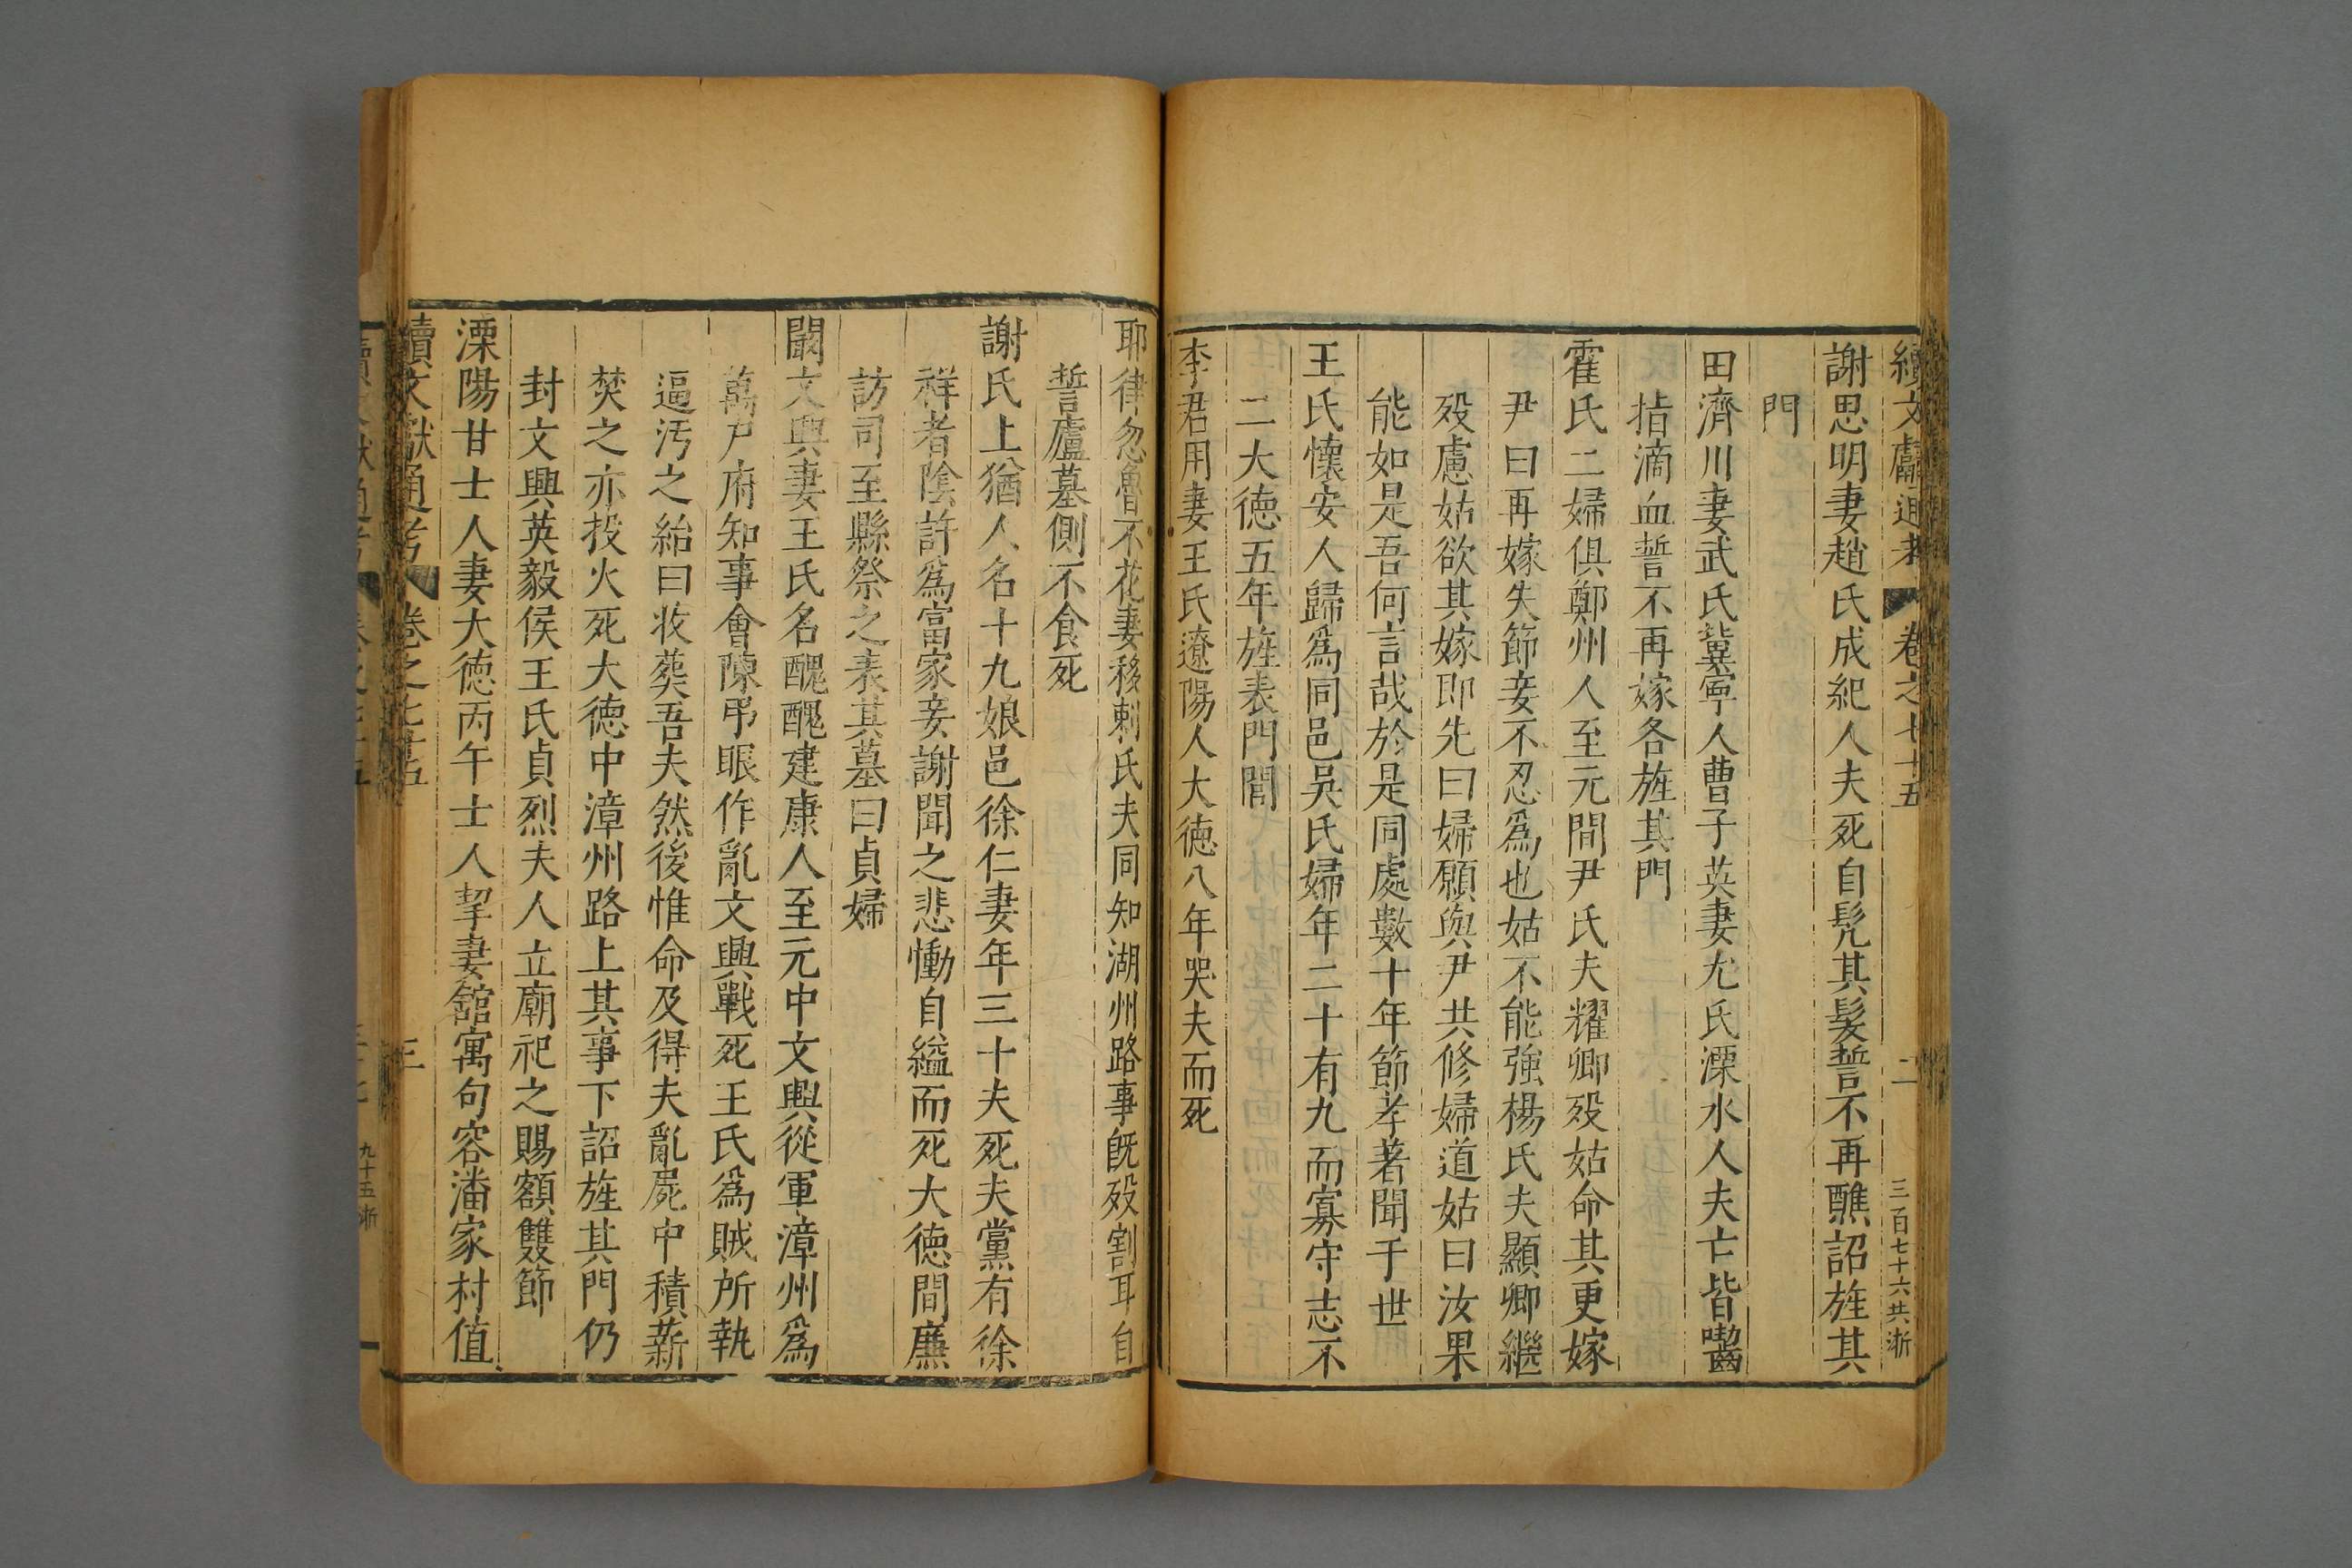 續文獻通考 卷之七十五 二 三百七十六共浙
謝思明妻趙氏成紀人夫死自髡其髮誓不再醮詔旌其
門
田濟川妻武氏冀寜人曹子英妻尤氏溧水人夫亡皆嚙
指滴血誓不再嫁各旌其門
霍氏二婦俱鄭州人至元間尹氏夫耀卿歿姑命其更嫁
尹曰再嫁失節妾不忍爲也姑不能強楊氏夫顯卿繼
歿慮姑欲其嫁即先曰婦願與尹共修婦道姑曰汝果
能如是吾何言哉於是同處數十年節孝著聞于世
王氏懷安人歸爲同邑吳氏婦年二十有九而寡守志不
二大徳五年旌表門閭
李君用妻王氏遼陽人大徳八年哭夫而死
耶律忽魯不花妻移剌氏夫同知湖州路事旣歿割耳自
誓廬墓側不食死
謝氏上猶人名十九娘邑徐仁妻年三十夫死夫黨有徐
祥者陰許爲富家妾謝聞之悲慟自縊而死大徳間廉
訪司至縣祭之表其墓曰貞婦
闞文興妻王氏名醜醜建康人至元中文興從軍漳州爲
萬戸府知事會陳弔眼作亂文興戰死王氏爲賊所執
逼汚之紿曰收葬吾夫然後惟命及得夫亂屍中積薪
焚之亦投火死大徳中漳州路上其事下詔旌其門仍
封文興英毅侯王氏貞烈夫人立廟祀之賜額雙節
溧陽甘士人妻大徳丙午士人挈妻舘寓句容潘家村值
續文獻通考 卷之七十五 三
九十五浙